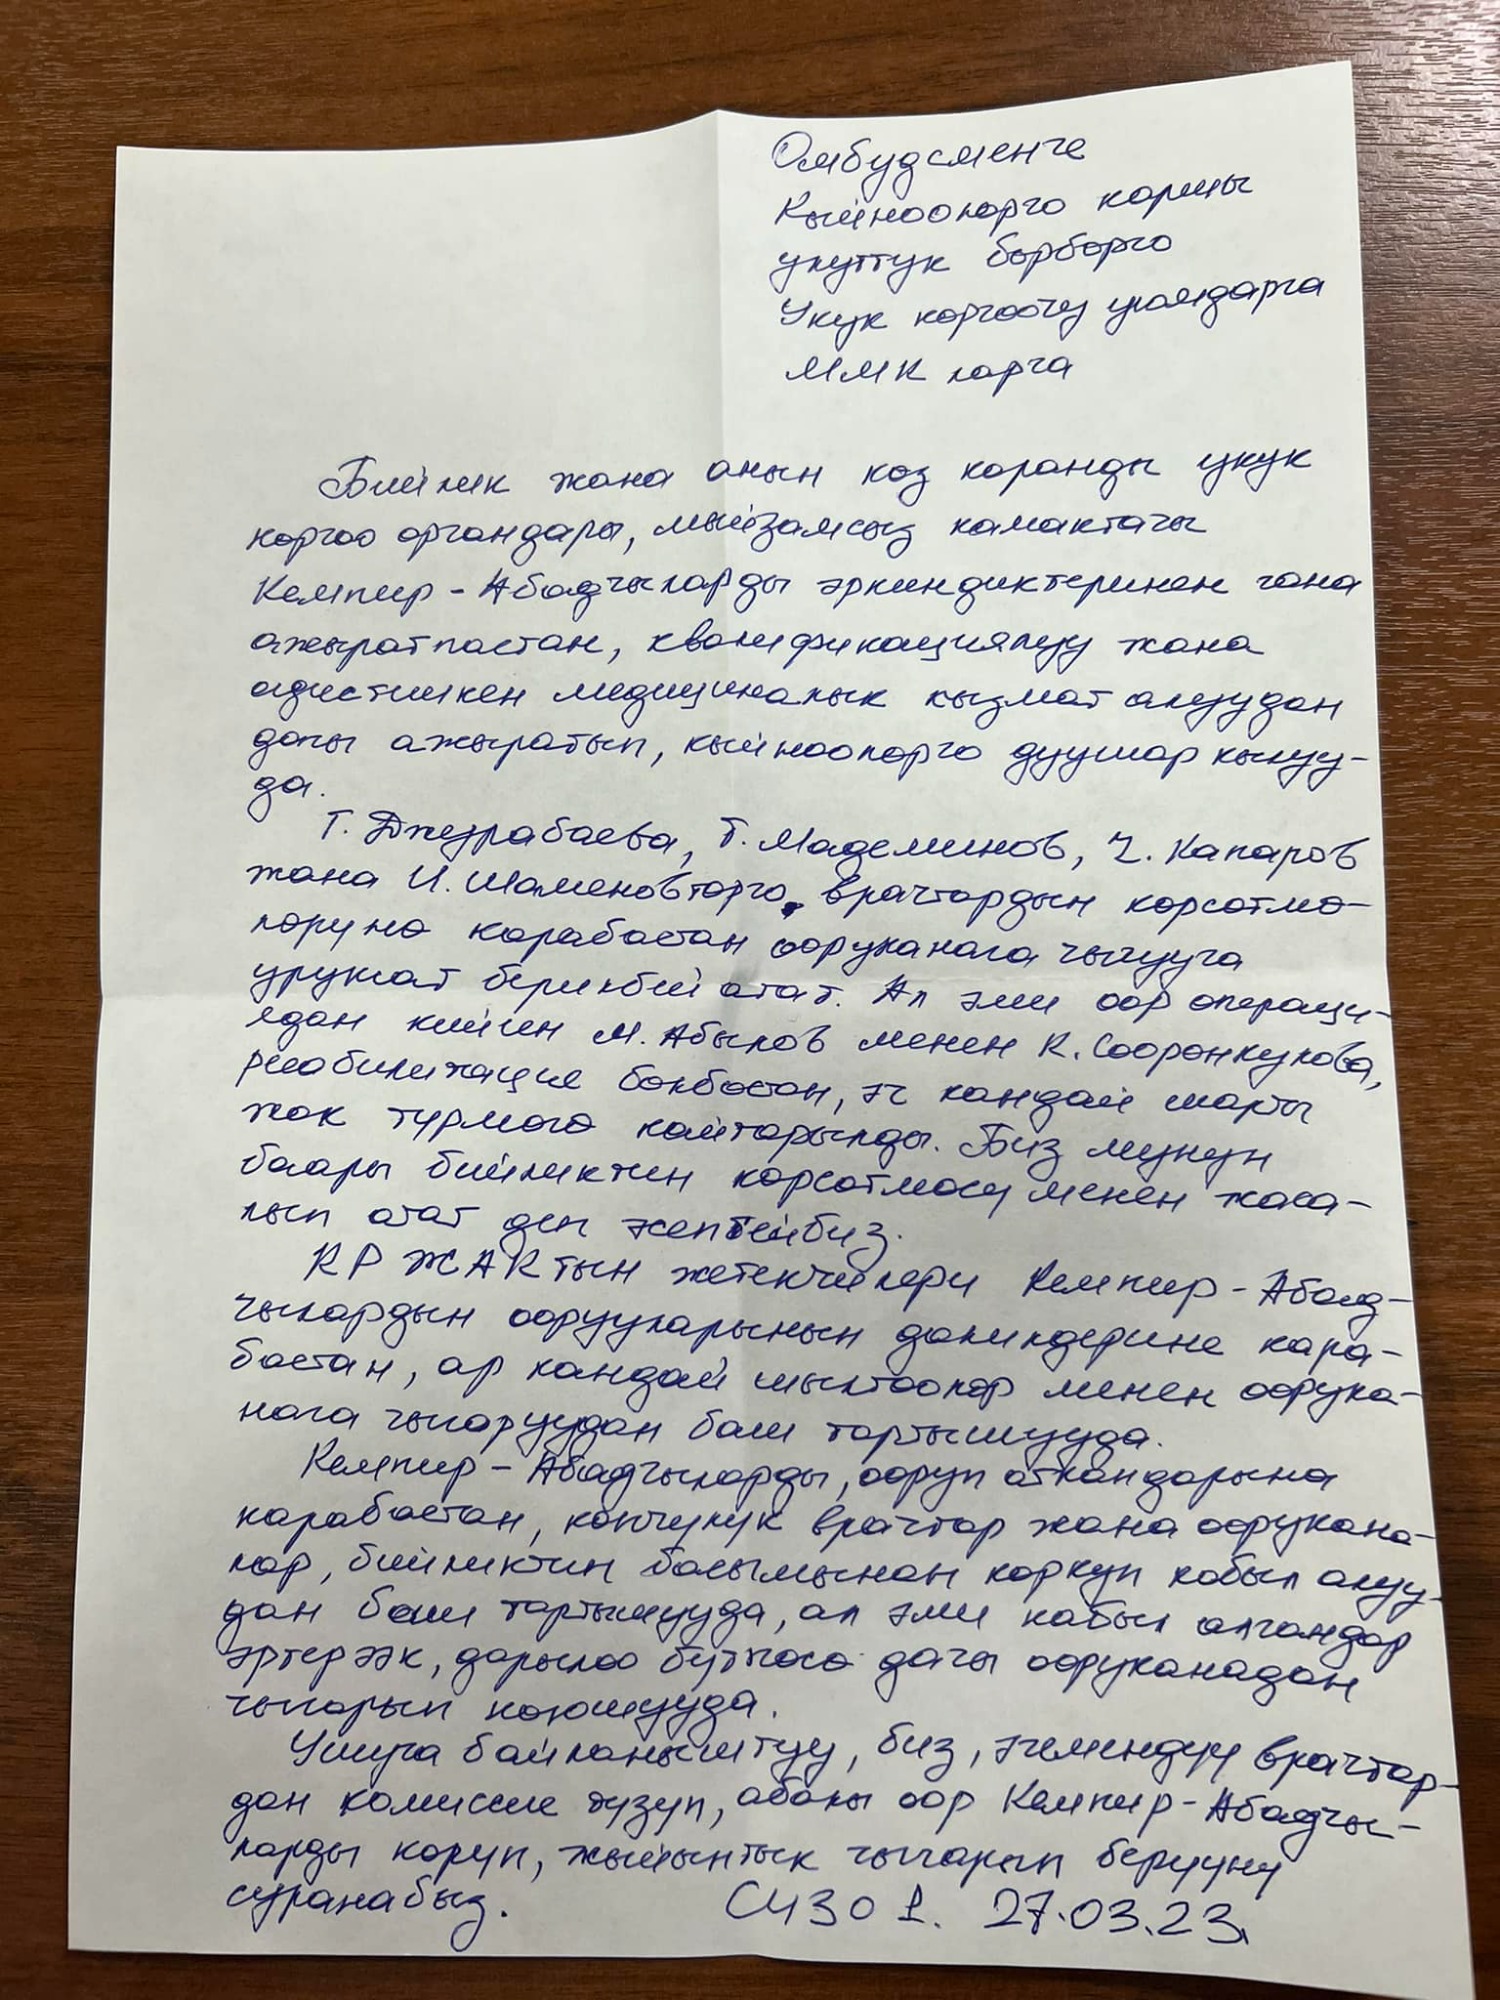 Омбудсменге
Кыйноолорго каршы
улуттук борборго
Укук коргоочу уюмдарга
ММК ларга
Бийлик жана анын коз каранды укук
коргоо органдары, мыйзамсыз камактагы
Кемпир-Абадчыларды эркиндиктеринен гана
ажыратпастан, квалификациялуу жана
адистишкен медициналык кызмат алуудан
дагы ажыратып, кыйноолорго дуушар кылуу-
да.
Г. Джурабаева, Т. Мадеминов, Ч. Капаров
жана И. Шаменовторго, врачтардын корсотмо-
лоруно карабастан ооруканага чыгууга
уруксат берилбей атат. Ал эми оор операци-
ядан кийин М. Абылов менен К. Сооронкулова,
реабилитация болбостон, эч кандай шарты
жок турмого кайтарылды. Биз мунун
баары бийликтин корсотмосу менен жаса-
лып атат деп эсептейбиз.
КР ЖАКтын жетекчилери Кемпир-Абад-
чылардын оорууларынын далилдерине кара-
бастан, ар кандай шылтоолор менен оорука-
нага чыгаруудан баш тартышууда.
Кемпир-Абадчыларды, ооруп аткандарына
карабастан, копчулук врачтар жана оорукана-
лар, бийликтин басымынан коркуп кабыл алуу-
дан баш тартышууда, ал эми кабыл алгандар
эртерээк, дарылоо бутпосо дагы ооруканадан
чыгарып коюшууда.
Ушуга байланыштуу, биз, эгемендуу врачтар-
дан комиссия тузуп, абалы оор Кемпир-Абадчы-
ларды коруп, жыйынтык чыгарып берууну
суранабыз. СИЗО 1. 27.03.23.